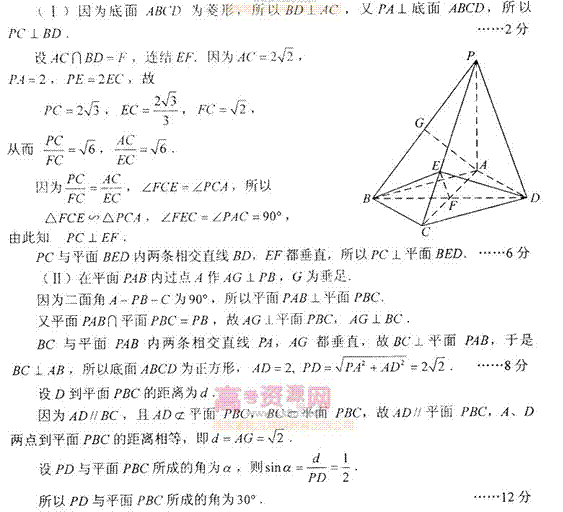 (Ⅰ)因为底面 ABCD 为菱形，所以 BD⊥AC，又 PA⊥底面 ABCD，所以
PC⊥BD． ······2分
设 AC∩BD=F，连结 EF．因为 AC=2√2，
PA=2，PE=2EC，故
PC=2√3，EC=2√3/3，FC=√2，
从而 PC/FC=√6，AC/EC=√6．
因为 PC/FC=AC/EC，∠FCE=∠PCA，所以
△FCE∽△PCA，∠FEC=∠PAC=90°，
由此知 PC⊥EF．
PC 与平面 BED 内两条相交直线 BD，EF 都垂直，所以 PC⊥平面 BED．······6分
(Ⅱ)在平面 PAB 内过点 A 作 AG⊥PB，G 为垂足．
因为二面角 A-PB-C 为 90°，所以平面 PAB⊥平面 PBC．
又平面 PAB∩平面 PBC=PB，故 AG⊥平面 PBC，AG⊥BC．
BC 与平面 PAB 内两条相交直线 PA，AG 都垂直，故 BC⊥平面 PAB，于是
BC⊥AB，所以底面 ABCD 为正方形，AD=2，PD=√(PA²+AD²)=2√2．······8分
设 D 到平面 PBC 的距离为 d．
因为 AD//BC，且 AD⊄平面 PBC，BC⊂平面 PBC，故 AD//平面 PBC，A、D
两点到平面 PBC 的距离相等，即 d=AG=√2．
设 PD 与平面 PBC 所成的角为 α，则 sinα=d/PD=1/2．
所以 PD 与平面 PBC 所成的角为 30°． ······12分
P
G
E
A
B
F
D
C
高考资源网